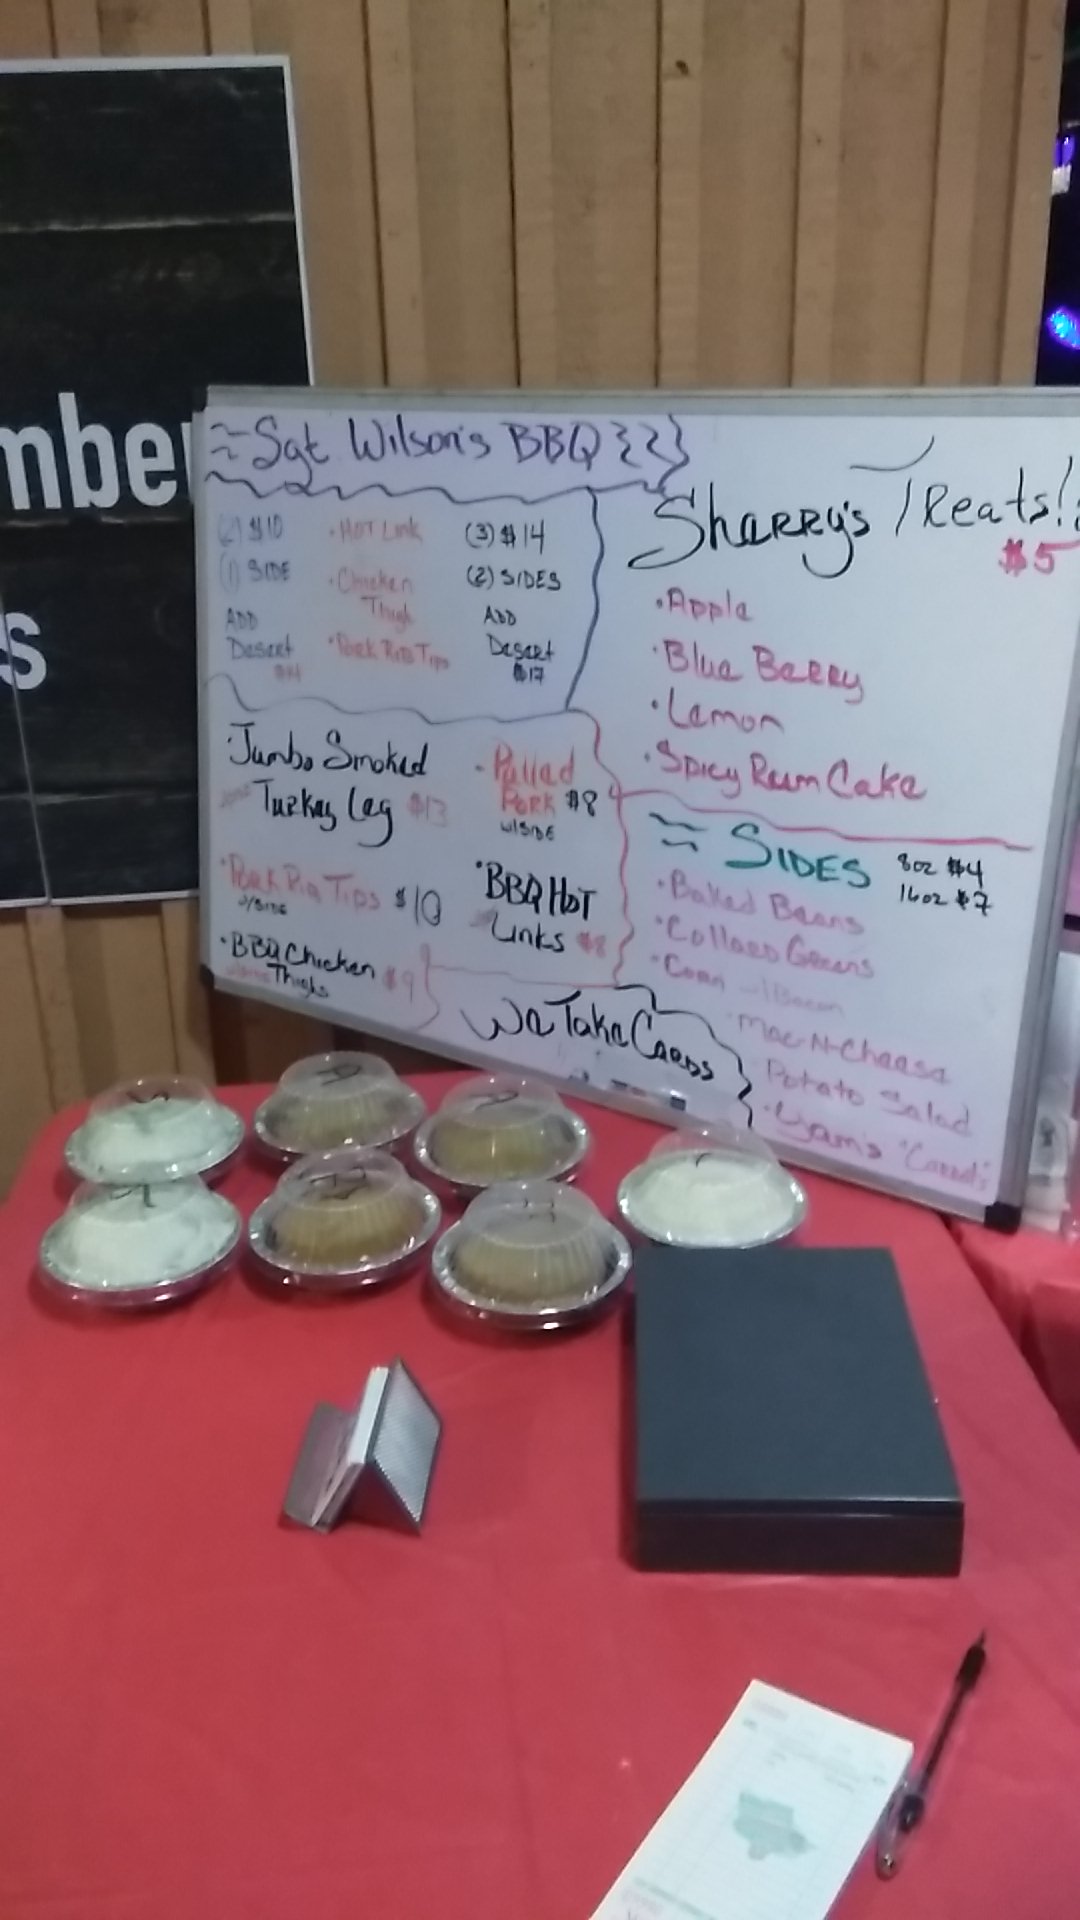 mber
s
Sgt Wilson's BBQ
(2) $10
(1) SIDE
ADD
Desert
$14
• HOT Link
• Chicken
Thigh
• Pork Rib Tips
(3) $14
(2) SIDES
ADD
Desert
$17
• Jumbo Smoked
Turkey Leg $13
• Pulled
PORK $8
w/SIDE
• Pork Rib Tips $10
w/SIDE
• BBQ HOT
Links $8
• BBQ Chicken $9
Thighs
We Take Cards
Sharry's Treats!
$5
• Apple
• Blue Berry
• Lemon
• Spicy Rum Cake
SIDES
8oz $4
16oz $7
• Baked Beans
• Collard Greens
• Corn w/Bacon
• Mac-N-Cheese
Potato Salad
• Yams